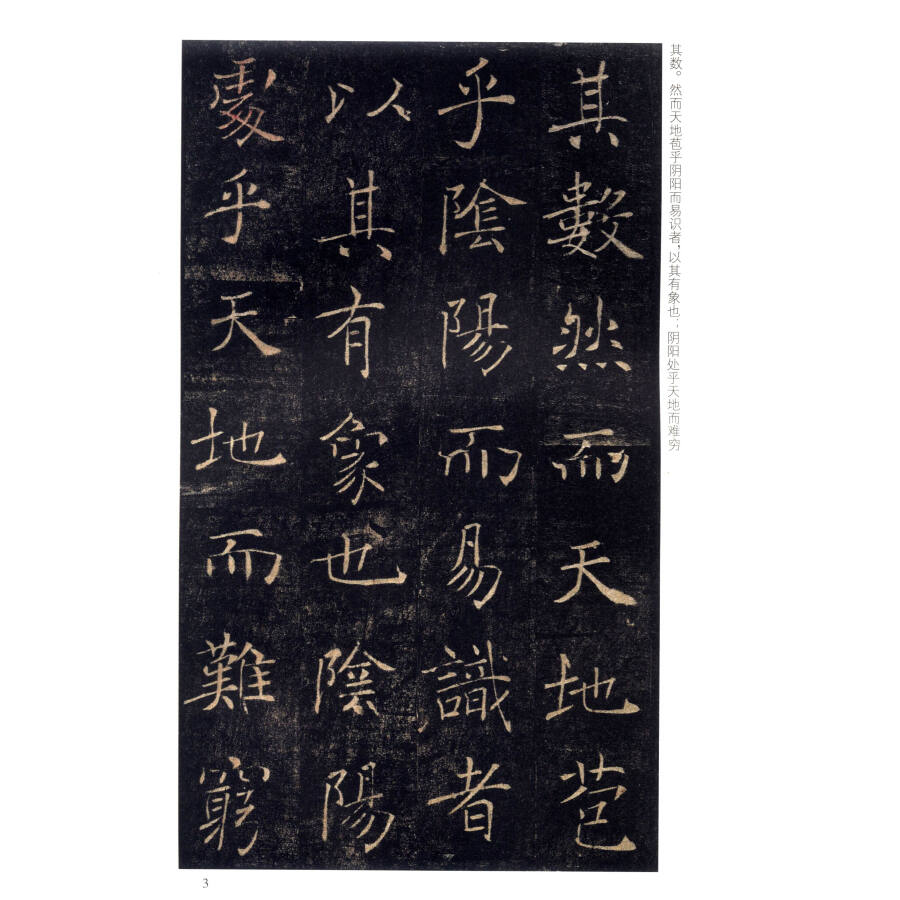 其数。然而天地苞乎阴阳而易识者，以其有象也；阴阳处乎天地而难穷
其數然而天地苞
乎陰陽而易識者
以其有象也陰陽
處乎天地而難窮
3